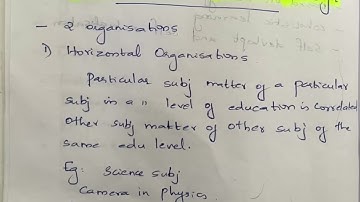 - 2 organisations
1) Horizontal Organisations
Particular subj matter of a particular
subj in a " level of education is correlated
other subj matter of other subj of the
same edu level.
Eg: Science subj
Camera in physics.